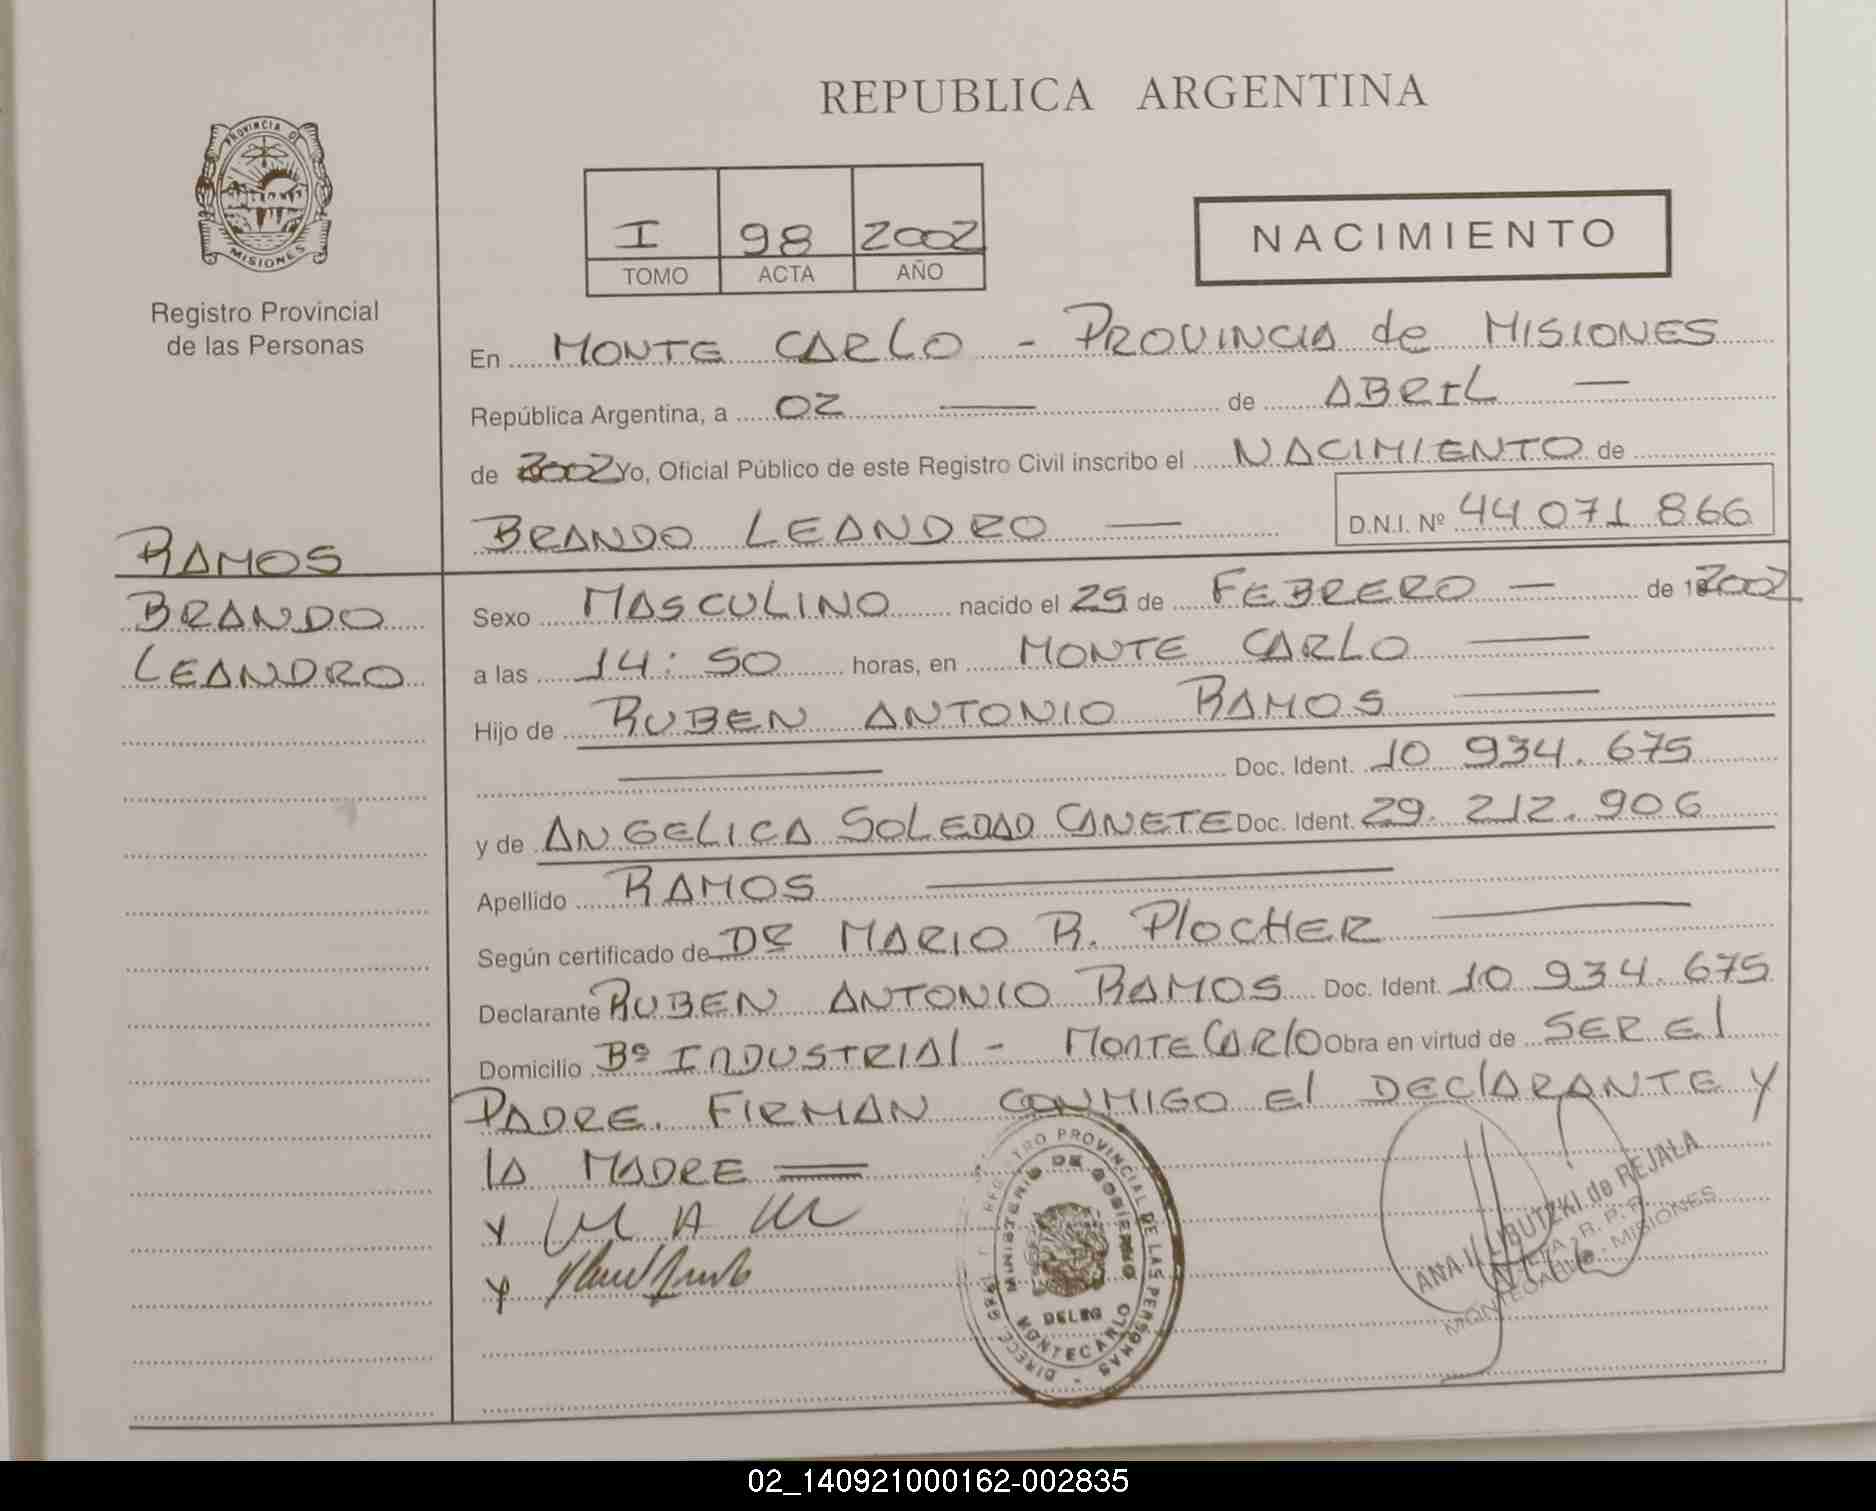 REPUBLICA ARGENTINA
PROVINCIA DE
MISIONES
Registro Provincial
de las Personas
I 98 2002
TOMO ACTA AÑO
NACIMIENTO
En MONTE CARLO - PROVINCIA de MISIONES
República Argentina, a 02 — de ABRIL —
de 2002 Yo, Oficial Público de este Registro Civil inscribo el NACIMIENTO de
BRANDO LEANDRO — D.N.I. Nº 44 071 866
RAMOS
BRANDO
LEANDRO
Sexo MASCULINO nacido el 25 de FEBRERO — de 2002
a las 14:50 horas, en MONTE CARLO —
Hijo de RUBEN ANTONIO RAMOS —
— Doc. Ident. 10 934.675
y de ANGELICA SOLEDAD CANETE Doc. Ident. 29.212.906
Apellido RAMOS —
Según certificado de Dr MARIO R. PlOCHER —
Declarante RUBEN ANTONIO RAMOS Doc. Ident. 10 934.675
Domicilio Bº INDUSTRIAl - MONTECARlO Obra en virtud de SER El
PADRE. FIRMAN CONMIGO El DEClARANTE Y
lA MADRE =
DIRECC. GRAL. REGISTRO PROVINCIAL DE LAS PERSONAS
MINISTERIO DE GOBIERNO
DELEG
MONTECARLO
ANA LIBUTZKI de REJALA
R. P. P.
MONTECARLO - MISIONES
02_140921000162-002835